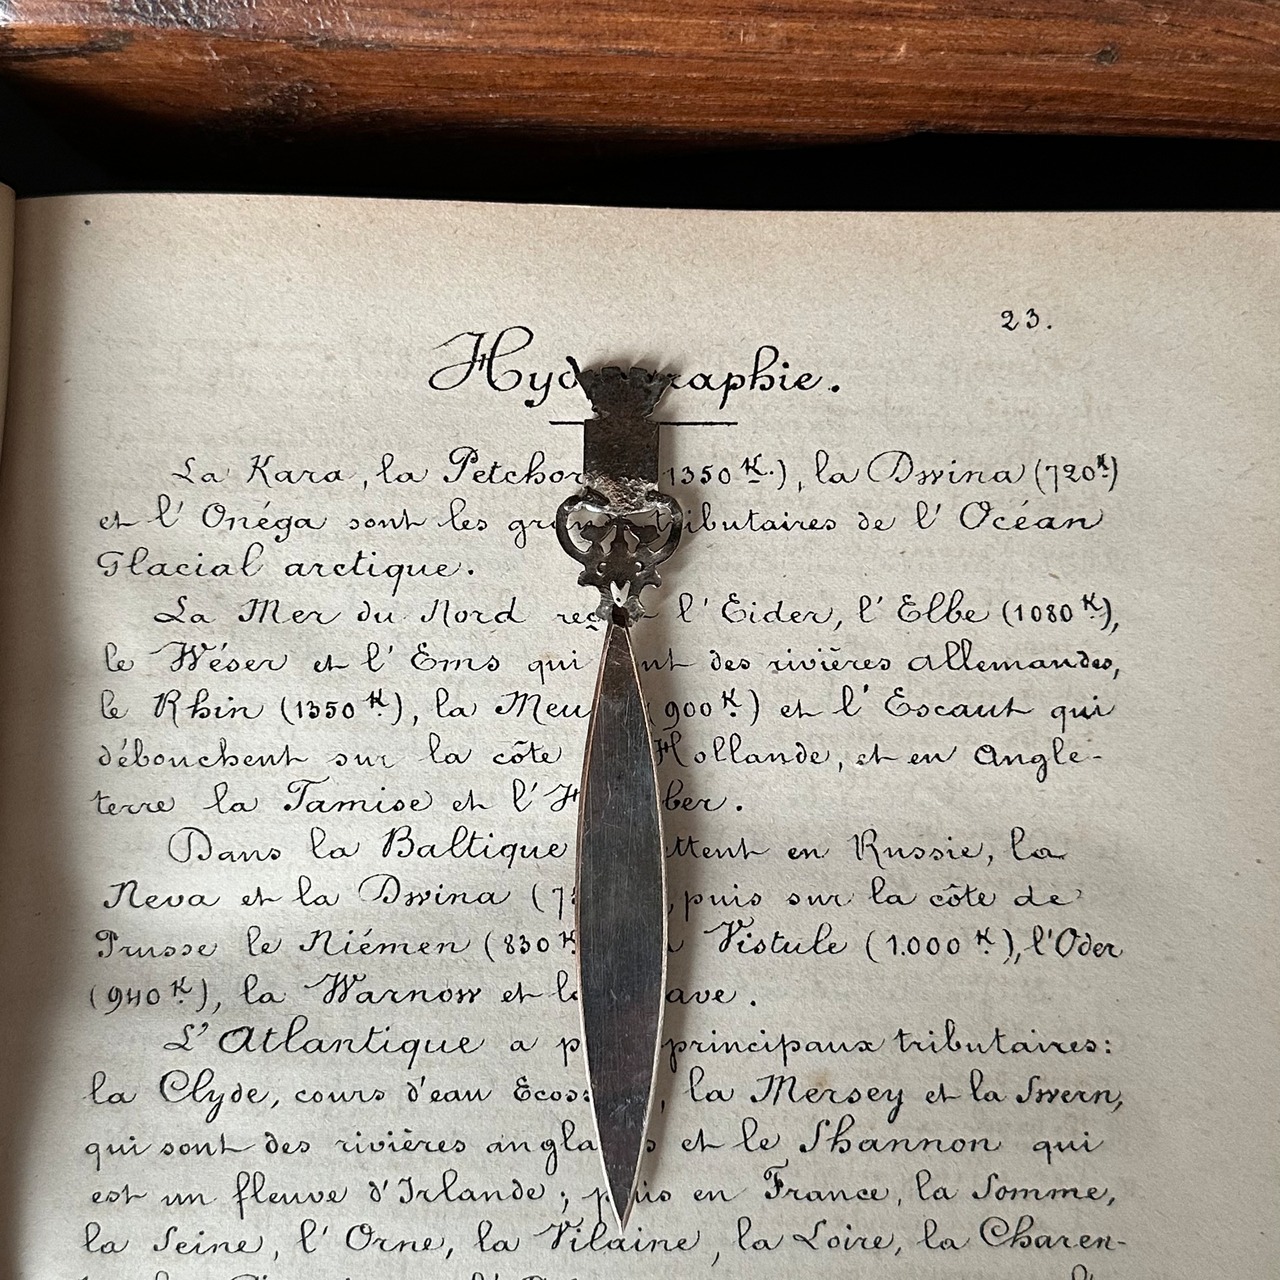 23.
Hyd raphie.
La Kara, la Petchor 1350 K.), la Dwina (720 K.)
et l'Onéga sont les gran tributaires de l'Océan
Glacial arctique.
La Mer du Nord reç l'Eider, l'Elbe (1080 K.),
le Wéser et l'Ems qui nt des rivières allemandes,
le Rhin (1350 K.), la Meu (900 K.) et l'Escaut qui
débouchent sur la côte Hollande, et en Angle-
terre la Tamise et l'H ber.
Dans la Baltique ttent en Russie, la
Neva et la Dwina (7 , puis sur la côte de
Prusse le Niémen (830 K Vistule (1.000 K.), l'Oder
(940 K.), la Warnow et la ave.
L'Atlantique a p principaux tributaires:
la Clyde, cours d'eau Ecoss , la Mersey et la Swern,
qui sont des rivières angla s et le Shannon qui
est un fleuve d'Irlande; puis en France, la Somme,
la Seine, l'Orne, la Vilaine, la Loire, la Charen-